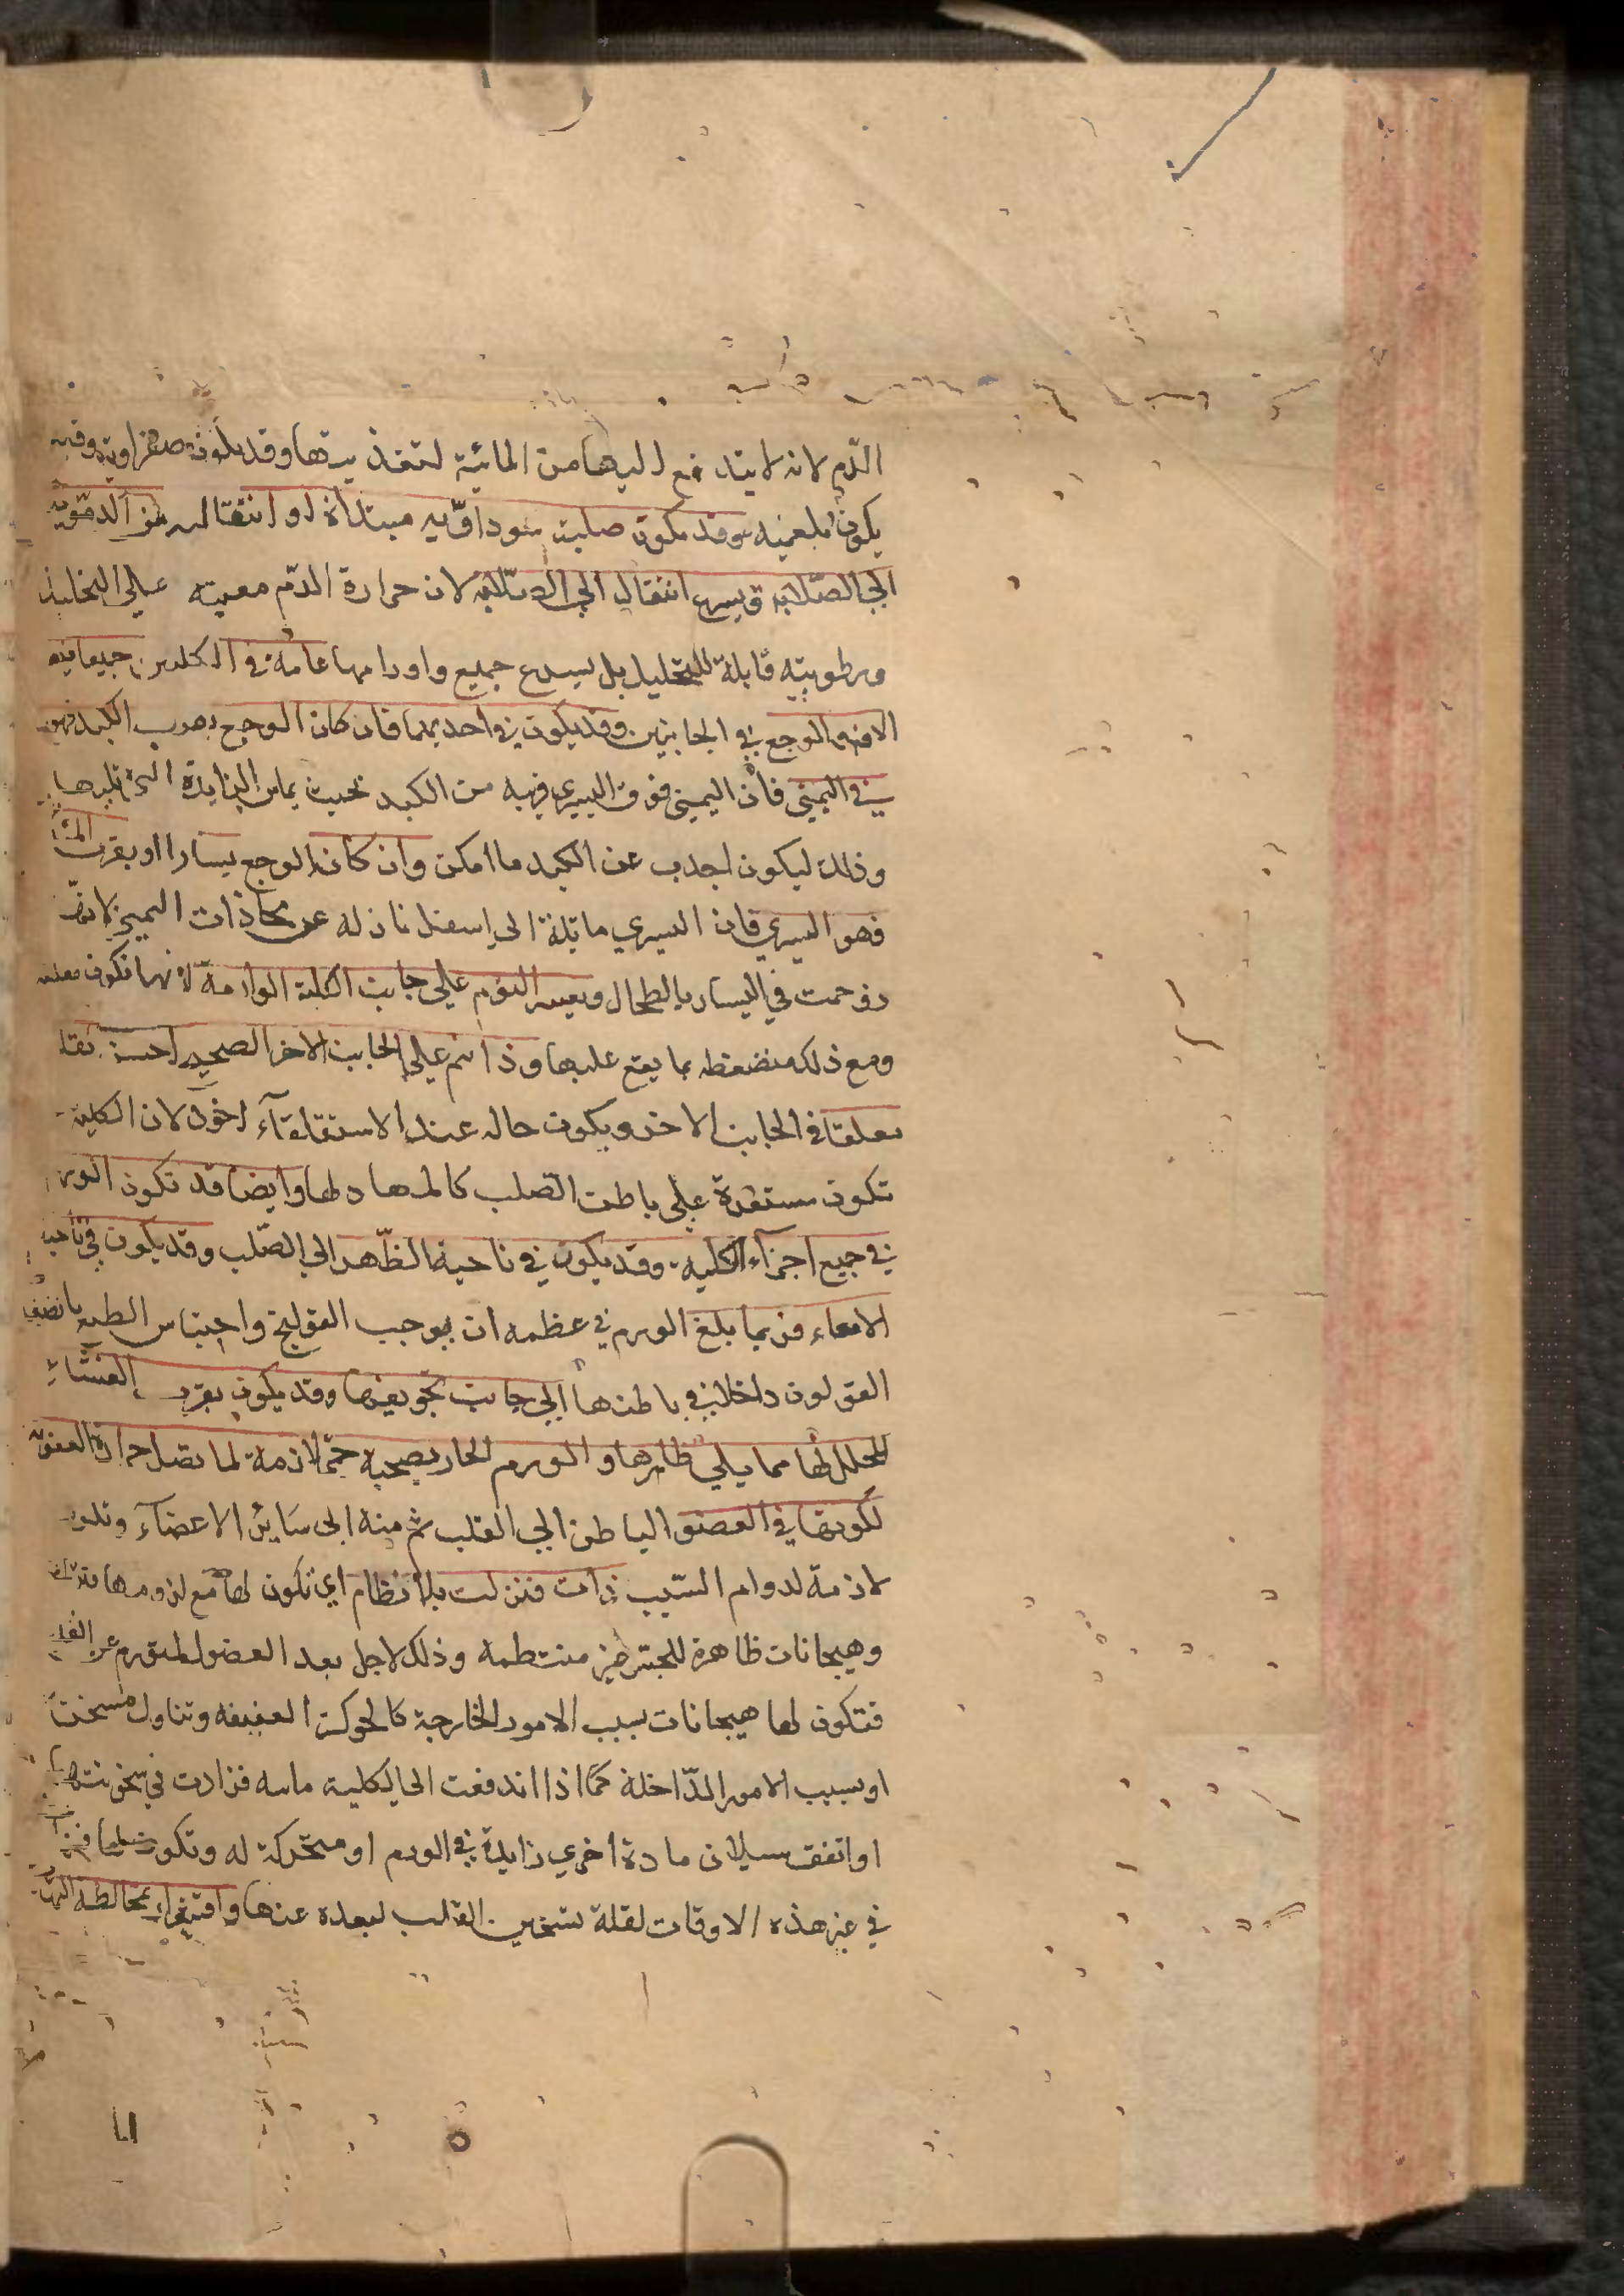 الدّم لانه لا يندفع اليها من المائية لتغذيتها وقد يكون صفراوية وقد
يكون بلغميه وقد يكون صلبة سوداوّيه مبتدأة او انتقاليه من الدمّويه
الى الصّلابه ويسرع انتقال الى الصّلابه لان حرارة الدّم معينه على التحليل
ورطوبته قابلة للتحليل بل يسرع جميع واورامها عامة في الكليتين جميعا فيه
الافة والوجع في الجانبين وقد يكون في احديهما فان كان الوجع بقرب الكبد فهو
في اليمنى فان اليمنى فوق اليسري قريبه من الكبد بحيث يماس الزايدة التي تليها
وذلك ليكون اجذب عن الكبد ما امكن وان كان الوجع يسارا او بقرب
فهو اليسري فان اليسري مائلة الى اسفل نازله عن محاذات اليمنى لانها
زوحمت في اليسار بالطحال ويعسر النوم على جانب الكلية الوارمة لانها تكون معلقه
ومع ذلك منضغطه بما يقع عليها وذا نم على الجانب الاخر الصحيح احس ثقلا
معلقا في الجانب الاخر ويكون حاله عند الاستقلقآء اخف لان الكلية
تكون مستقرة على باطن الصّلب كالمهاد لها وايضا قد تكون الورم
في جميع اجزآء الكلية وقد يكون في ناحية الظّهر الى الصّلب وقد يكون في ناحية
الامعاء فربما بلغ الورم في عظمه ان يوجب القولنج واحتباس الطبع
القولون داخلا في باطنها الى جانب تجويفها وقد يكون بقرب الغشاء
المجلل لها مما يلي ظاهرها والورم الحار يصحبه حمى لازمة لما تصل حرارة العفونه
لكونها في العضو الباطن الى القلب ثم منه الى سائر الاعضآء وتكون
لازمة لدوام السّبب ذات فترات بلا نظام اي تكون لها مع لزومها
وهيجانات ظاهرة للحس غير منتظمه وذلك لاجل بعد العضو المتورم عن القلب
فتكون لها هيجانات بسبب الامور الخارجة كالحركة العنيفه وتناول مسخن
او بسبب الامور الدّاخلة كما اذا اندفعت الى الكلية مائيه فزادت في سخونتها
او اتفق سيلان مادة اخري زايدة في الورم او متحركة له وتكون
في غير هذه الاوقات لقلة تسخين القلب لبعده عنها